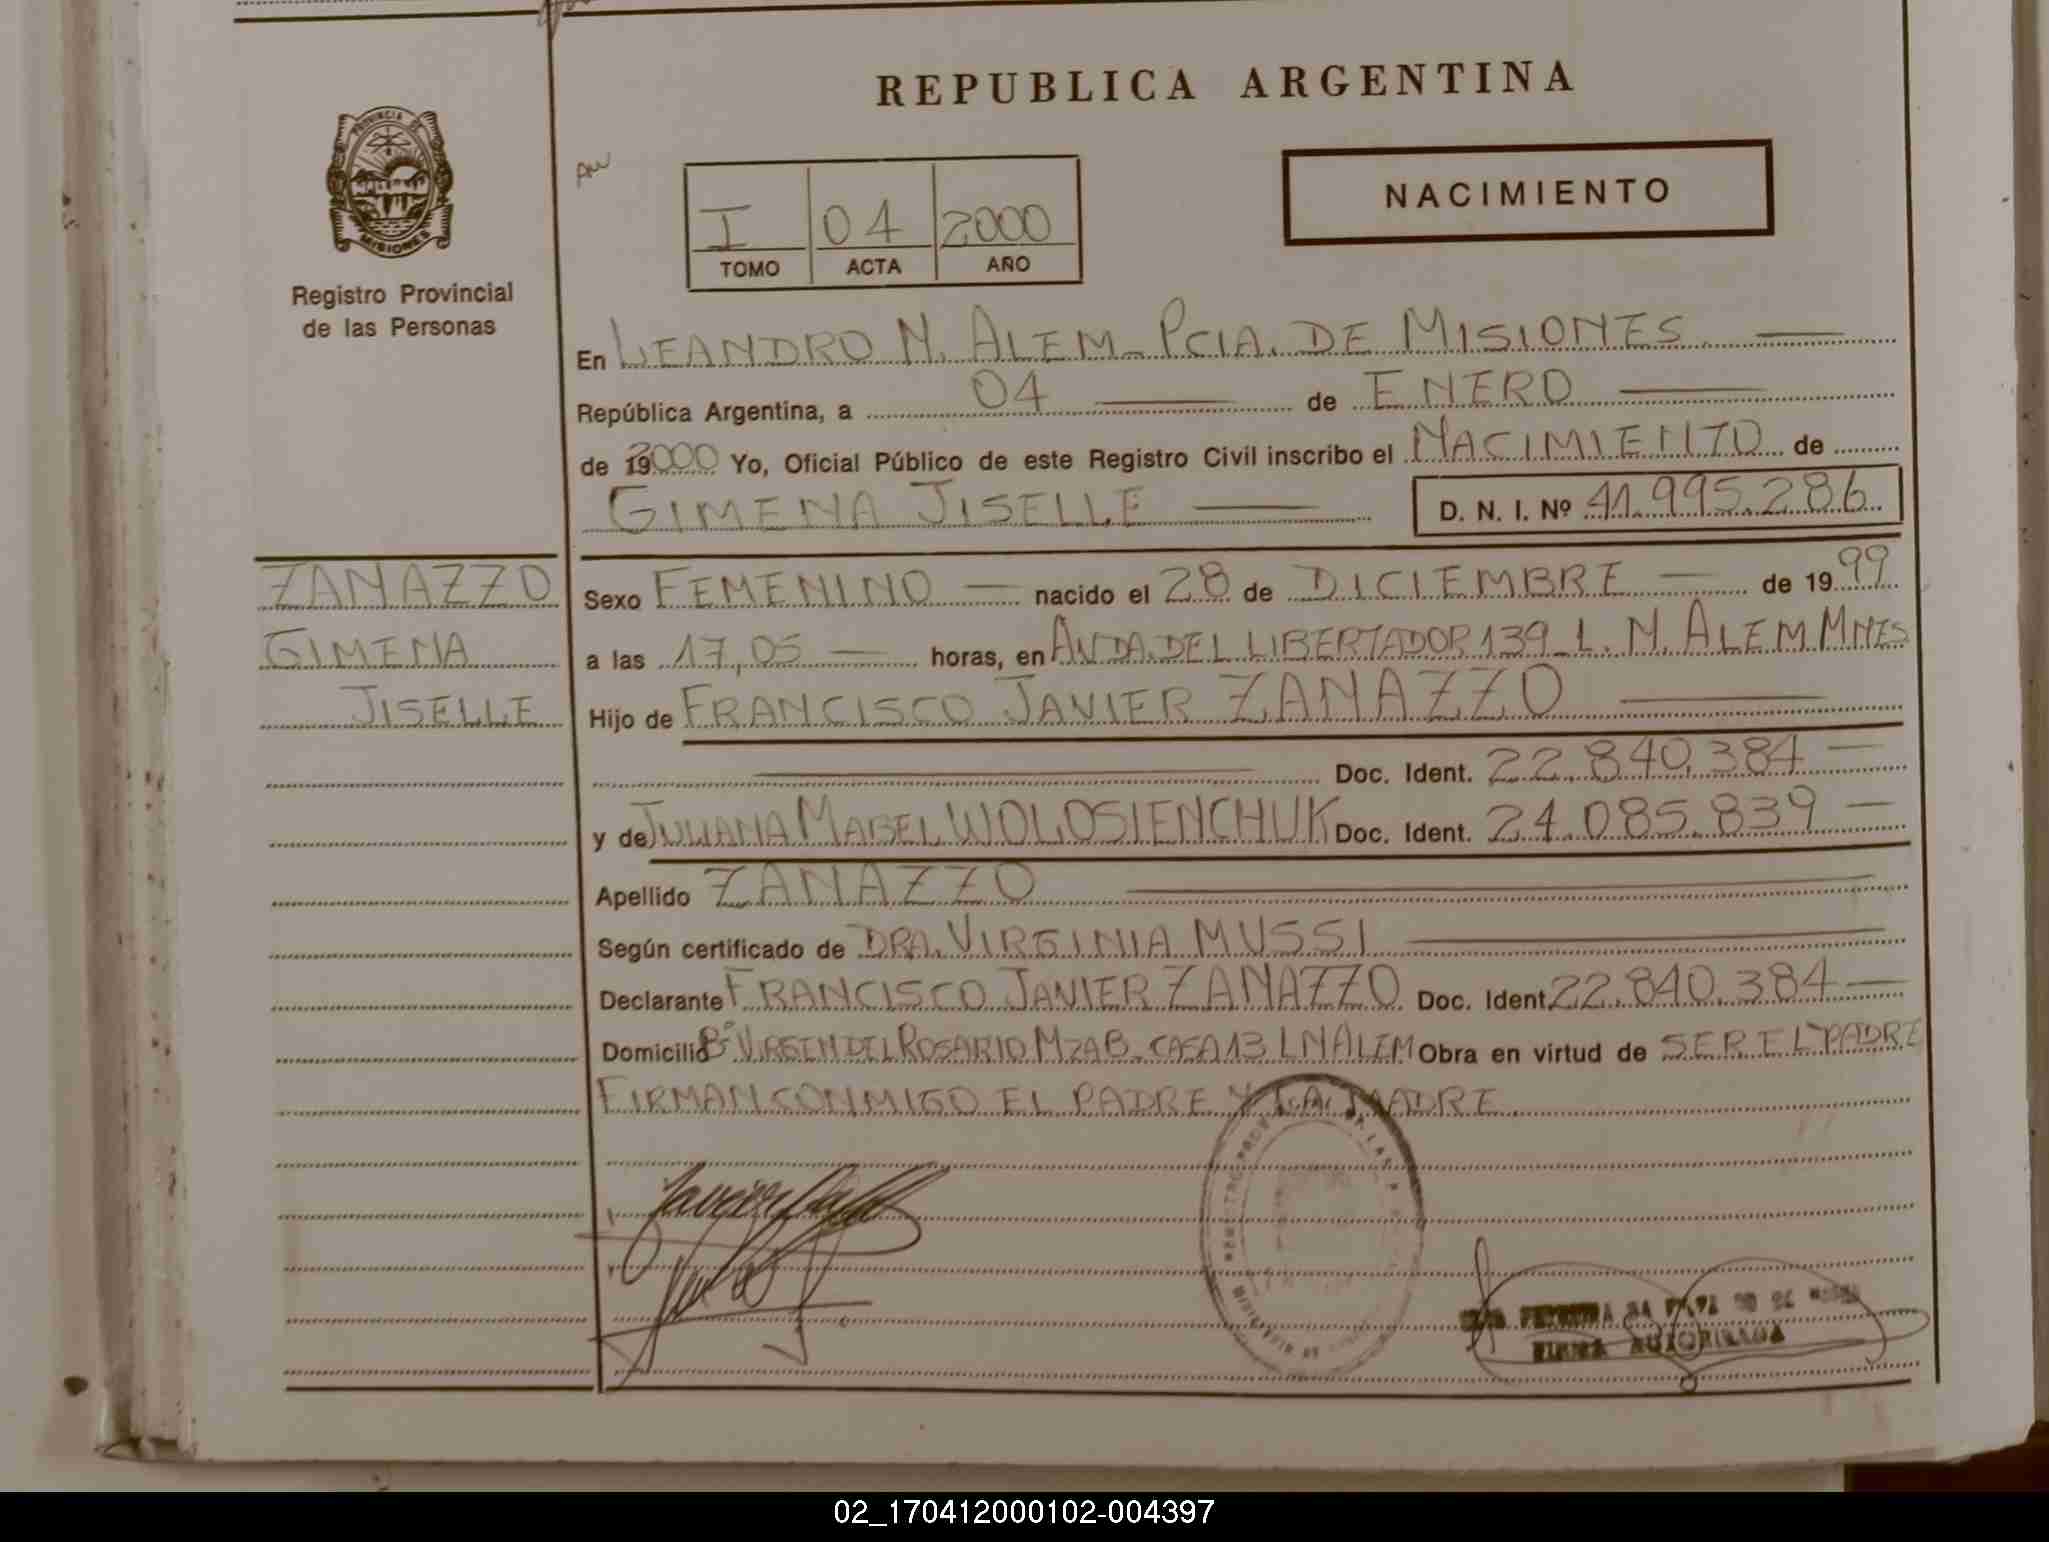 REPUBLICA ARGENTINA
PROVINCIA DE
MISIONES
Registro Provincial
de las Personas
NACIMIENTO
I 04 2000
TOMO ACTA AÑO
En LEANDRO N. ALEM - PCIA. DE MISIONES
República Argentina, a 04 de ENERO
de 2000 Yo, Oficial Público de este Registro Civil inscribo el NACIMIENTO de
GIMENA JISELLE
D. N. I. Nº 41.995.286
ZANAZZO
GIMENA
JISELLE
Sexo FEMENINO nacido el 28 de DICIEMBRE de 1999
a las 17,05 horas, en AVDA. DEL LIBERTADOR 139 - L. N. ALEM MNES
Hijo de FRANCISCO JAVIER ZANAZZO
Doc. Ident. 22.840.384
y de JULIANA MABEL WOLOSIENCHUK Doc. Ident. 24.085.839
Apellido ZANAZZO
Según certificado de DRA. VIRGINIA MUSSI
Declarante FRANCISCO JAVIER ZANAZZO Doc. Ident 22.840.384
Domicilio Bº VIRGEN DEL ROSARIO MZA B - CASA 13 L N ALEM Obra en virtud de SER EL PADRE
FIRMAN CONMIGO EL PADRE Y LA MADRE.
FIRMA AUTORIZADA
02_170412000102-004397